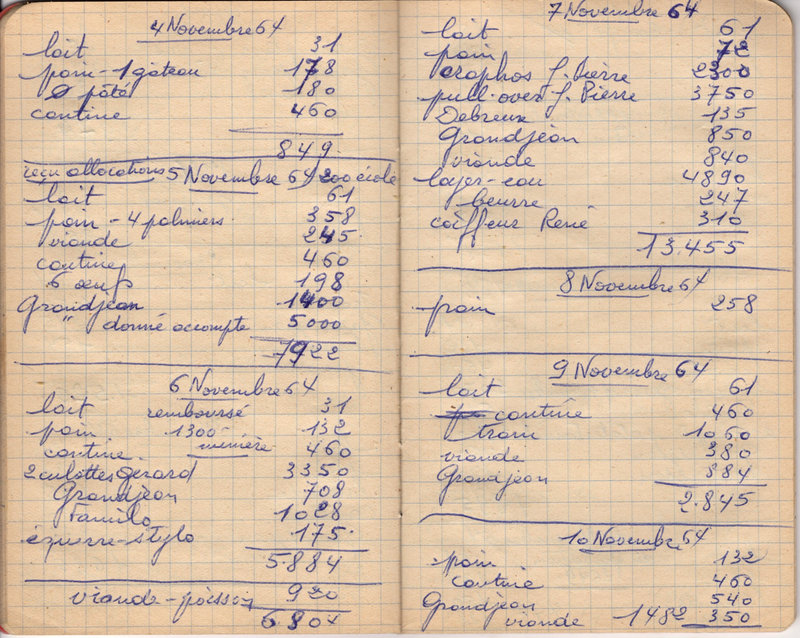 4 Novembre 64
lait 31
pain - 1 gâteau 178
Ø pâté 180
cantine 460
849
reçu allocations 5 Novembre 64
lait 61
pain - 4 palmiers 358
viande 245
cantine 460
6 œufs 198
Grandjean 1400
" donné accompte 5000
7922
6 Novembre 64
lait remboursé 31
pain 1300 132
cantine 460
2 culottes Gerard 3350
Grandjean 708
Familo 1028
équerre-stylo 175
5884
viande - poisson 920
6804
7 Novembre 64
lait 61
pain 72
J. Pierre 2300
pull-over J. Pierre 3750
Debreux 135
Grandjean 850
viande 840
loyer-eau 4890
beurre 247
coiffeur René 310
13.455
8 Novembre 64
pain 258
9 Novembre 64
lait 61
cantine 460
train 1060
viande 380
Grandjean 884
2.845
10 Novembre 64
pain 132
cantine 460
Grandjean 540
viande 1482 350